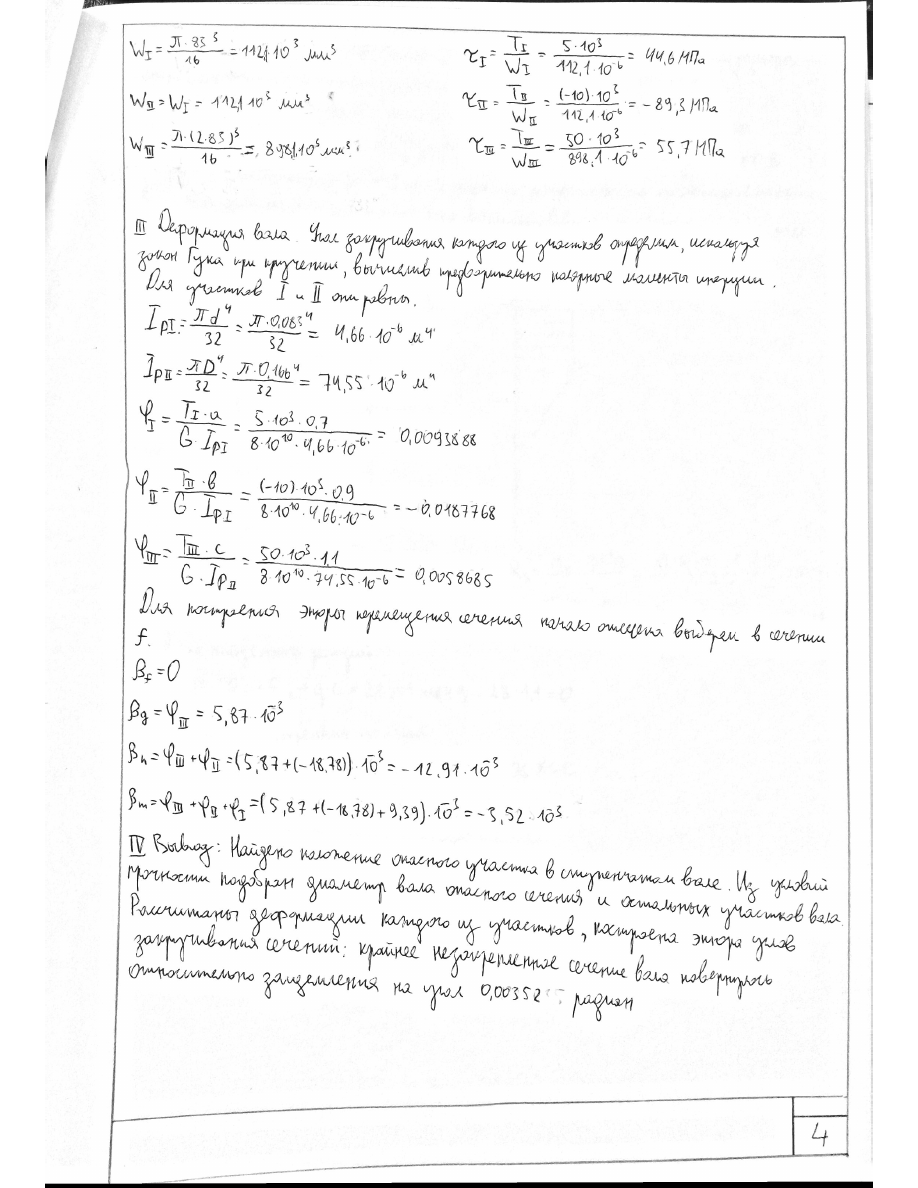 W_I = π·83³/16 = 112,1·10³ мм³
τ_I = T_I/W_I = 5·10³/112,1·10⁻⁶ = 44,6 МПа
W_II = W_I = 112,1·10³ мм³
τ_II = T_II/W_II = (-10)·10³/112,1·10⁻⁶ = -89,3 МПа
W_III = π·(2·83)³/16 = 898,1·10³ мм³
τ_III = T_III/W_III = 50·10³/898,1·10⁻⁶ = 55,7 МПа
III Деформация вала. Угол закручивания каждого из участков определим, используя
закон Гука при кручении, вычислив предварительно полярные моменты инерции.
Для участков I и II они равны.
I_pI = πd⁴/32 = π·0,083⁴/32 = 4,66·10⁻⁶ м⁴
I_pII = πD⁴/32 = π·0,166⁴/32 = 74,55·10⁻⁶ м⁴
φ_I = T_I·a/G·I_pI = 5·10³·0,7/8·10¹⁰·4,66·10⁻⁶ = 0,0093888
φ_II = T_II·в/G·I_pI = (-10)·10³·0,9/8·10¹⁰·4,66·10⁻⁶ = -0,0187768
φ_III = T_III·c/G·I_pII = 50·10³·1,1/8·10¹⁰·74,55·10⁻⁶ = 0,0058685
Для построения эпюры перемещения сечения начало отсчета выберем в сечении
f.
β_f = 0
β_g = φ_III = 5,87·10⁻³
β_n = φ_III + φ_II = (5,87 + (-18,78))·10⁻³ = -12,91·10⁻³
β_m = φ_III + φ_II + φ_I = (5,87 + (-18,78) + 9,39)·10⁻³ = -3,52·10⁻³
IV Вывод: Найдено положение опасного участка в ступенчатом вале. Из условий
прочности подобран диаметр вала опасного сечения и остальных участков вала.
Рассчитаны деформации каждого из участков, построена эпюра углов
закручивания сечений: крайнее незакрепленное сечение вала повернулось
относительно защемления на угол 0,00352 радиан
4